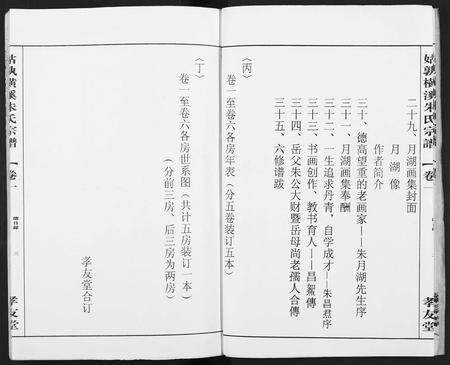 姑孰橫溪朱氏宗譜
【卷一
孝友堂
二十九、月湖画集封面
月湖像
作者简介
三十、德高望重的老画家——朱月湖先生序
三十一、月湖画集奉酬
三十二、一生追求丹青，自学成才——朱昌焄序
三十三、书画创作、教书育人——昌翟傳
三十四、岳父朱公大財暨岳母尚老孺人合傳
三十五、六修谱跋
（丙）
卷一至卷六各房年表（分五卷装订五本）
（丁）
卷一至卷六各房世系图（共计五房装订一本）
（分前三房、后三房为两房）
孝友堂合订
姑孰橫溪朱氏宗譜
【卷一
總目録
孝友堂